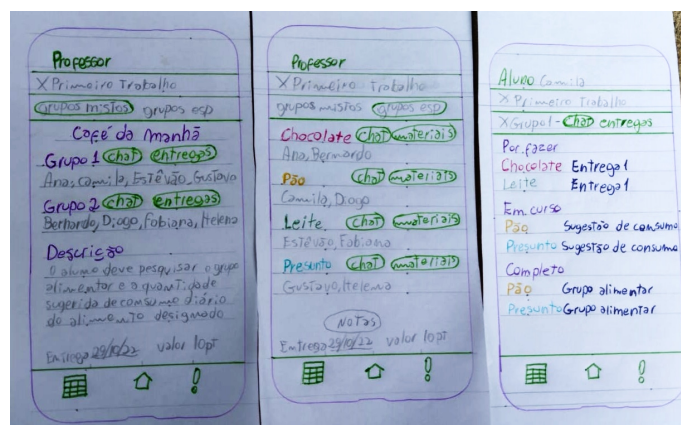 Professor
X Primeiro Trabalho
grupos mistos grupos esp
Café da Manhã
Grupo 1 chat entregas
Ana, Camila, Estêvão, Gustavo
Grupo 2 chat entregas
Bernardo, Diogo, Fabiana, Helena
Descrição
O aluno deve pesquisar o grupo
alimentar e a quantidade
sugerida de consumo diário
do alimento designado
Entrega 29/10/22 valor 10pt
Professor
X Primeiro Trabalho
grupos mistos grupos esp
Chocolate chat materiais
Ana, Bernardo
Pão chat materiais
Camila, Diogo
Leite chat materiais
Estêvão, Fabiana
Presunto chat materiais
Gustavo, Helena
Notas
Entrega 29/10/22 valor 10pt
Aluno Camila
X Primeiro Trabalho
X Grupo 1 - chat entregas
Por fazer
Chocolate Entrega 1
Leite Entrega 1
Em curso
Pão Sugestão de consumo
Presunto Sugestão de consumo
Completo
Pão Grupo alimentar
Presunto Grupo alimentar